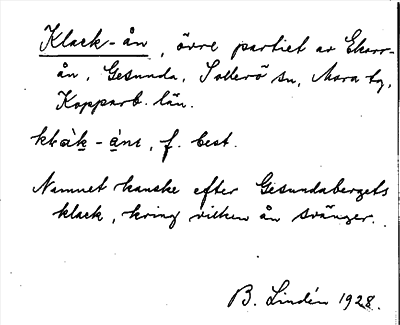 Klack-ån, övre partiet av Ekorr-
ån, Gesunda, Sollerö sn, Mora tg,
Kopparb. län.
klak-åne, f. best.
Namnet kanske efter Gesundabergets
klack, kring vilken ån svänger.
B. Lindén 1928.